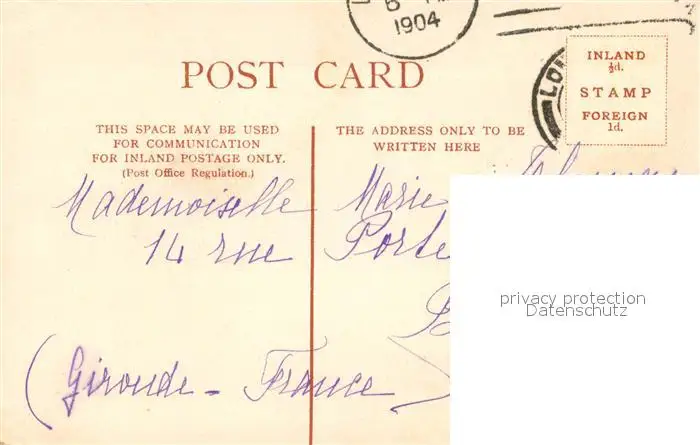 1904
POST CARD
INLAND
½d.
STAMP
FOREIGN
1d.
THIS SPACE MAY BE USED
FOR COMMUNICATION
FOR INLAND POSTAGE ONLY.
(Post Office Regulation.)
THE ADDRESS ONLY TO BE
WRITTEN HERE
Mademoiselle Marie
14 rue Porte
(Gironde - France
privacy protection
Datenschutz